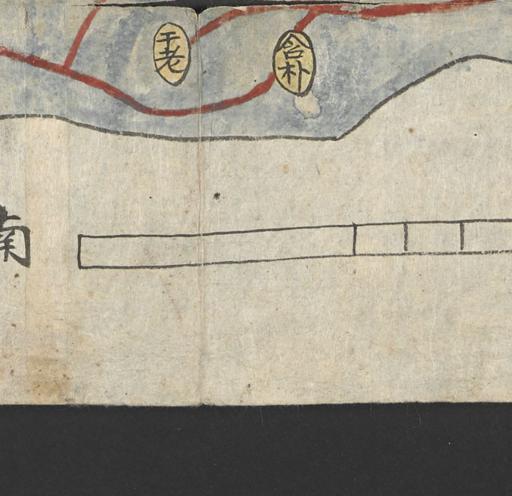 于老
合朴
南